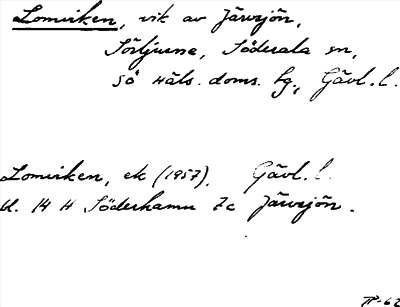 Lomviken, vik av Järvsjön,
Sörljusne, Söderala sn,
Sö Häls. doms. hg., Gävl. l.
Lomviken, ek (1957). Gävl. l.
bl. 14 H Söderhamn 7c Järvsjön.
-62